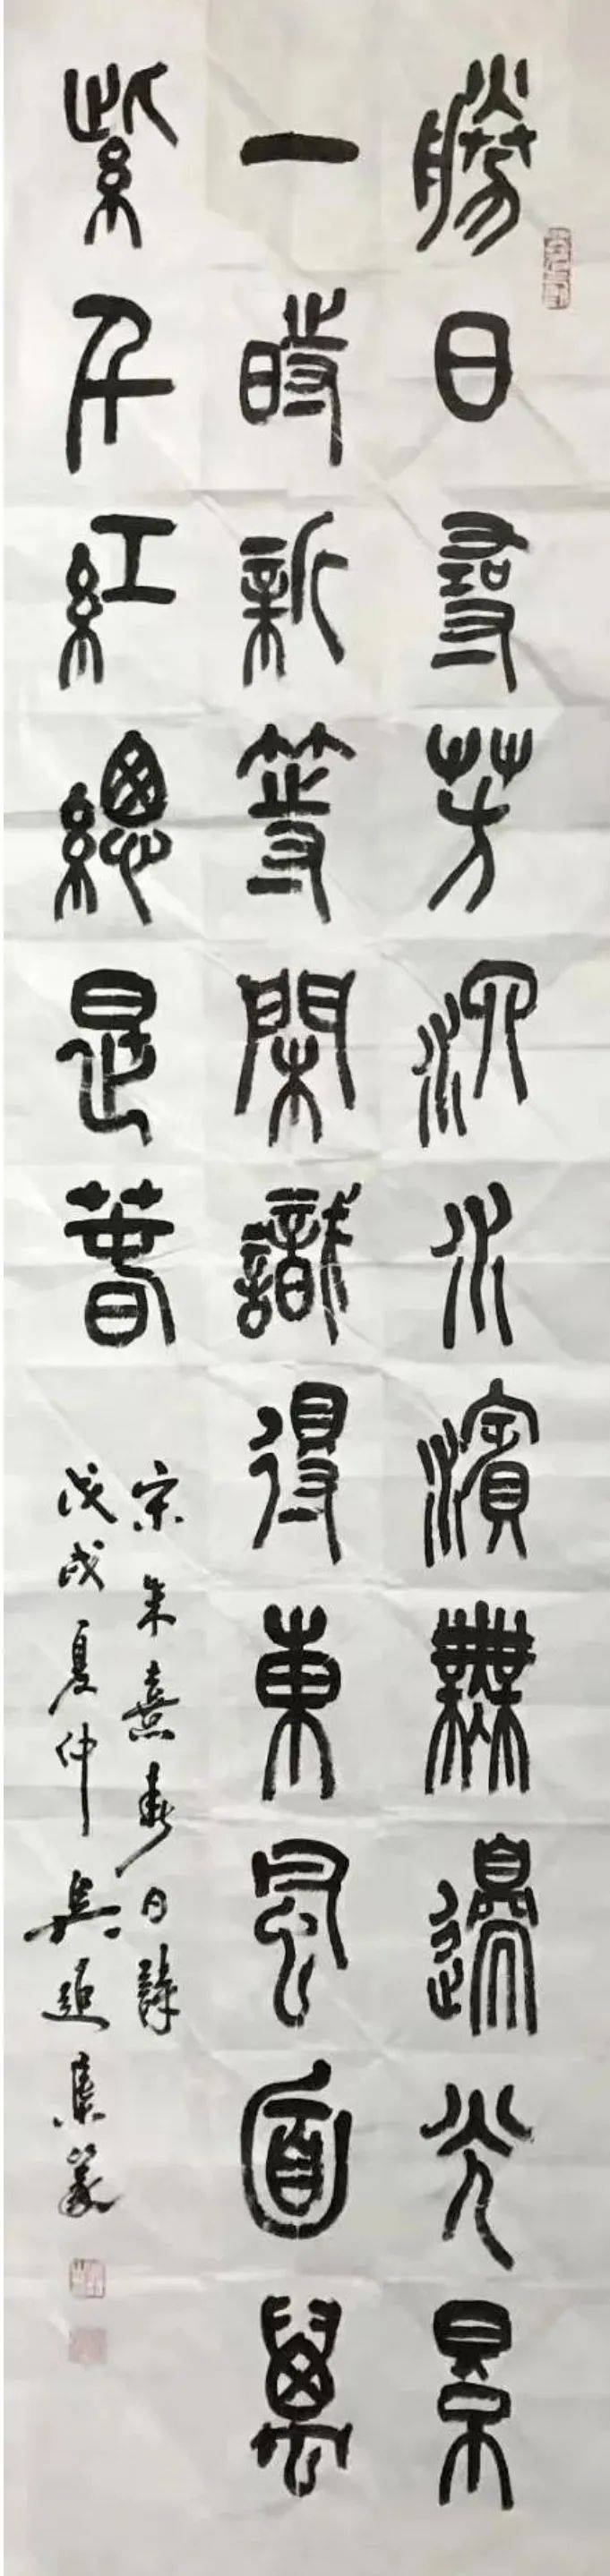 勝日尋芳泗水濱無邊光景
一時新等閑識得東風面萬
紫千紅總是春
宋朱熹春日詩
戊戌夏仲吳集篆